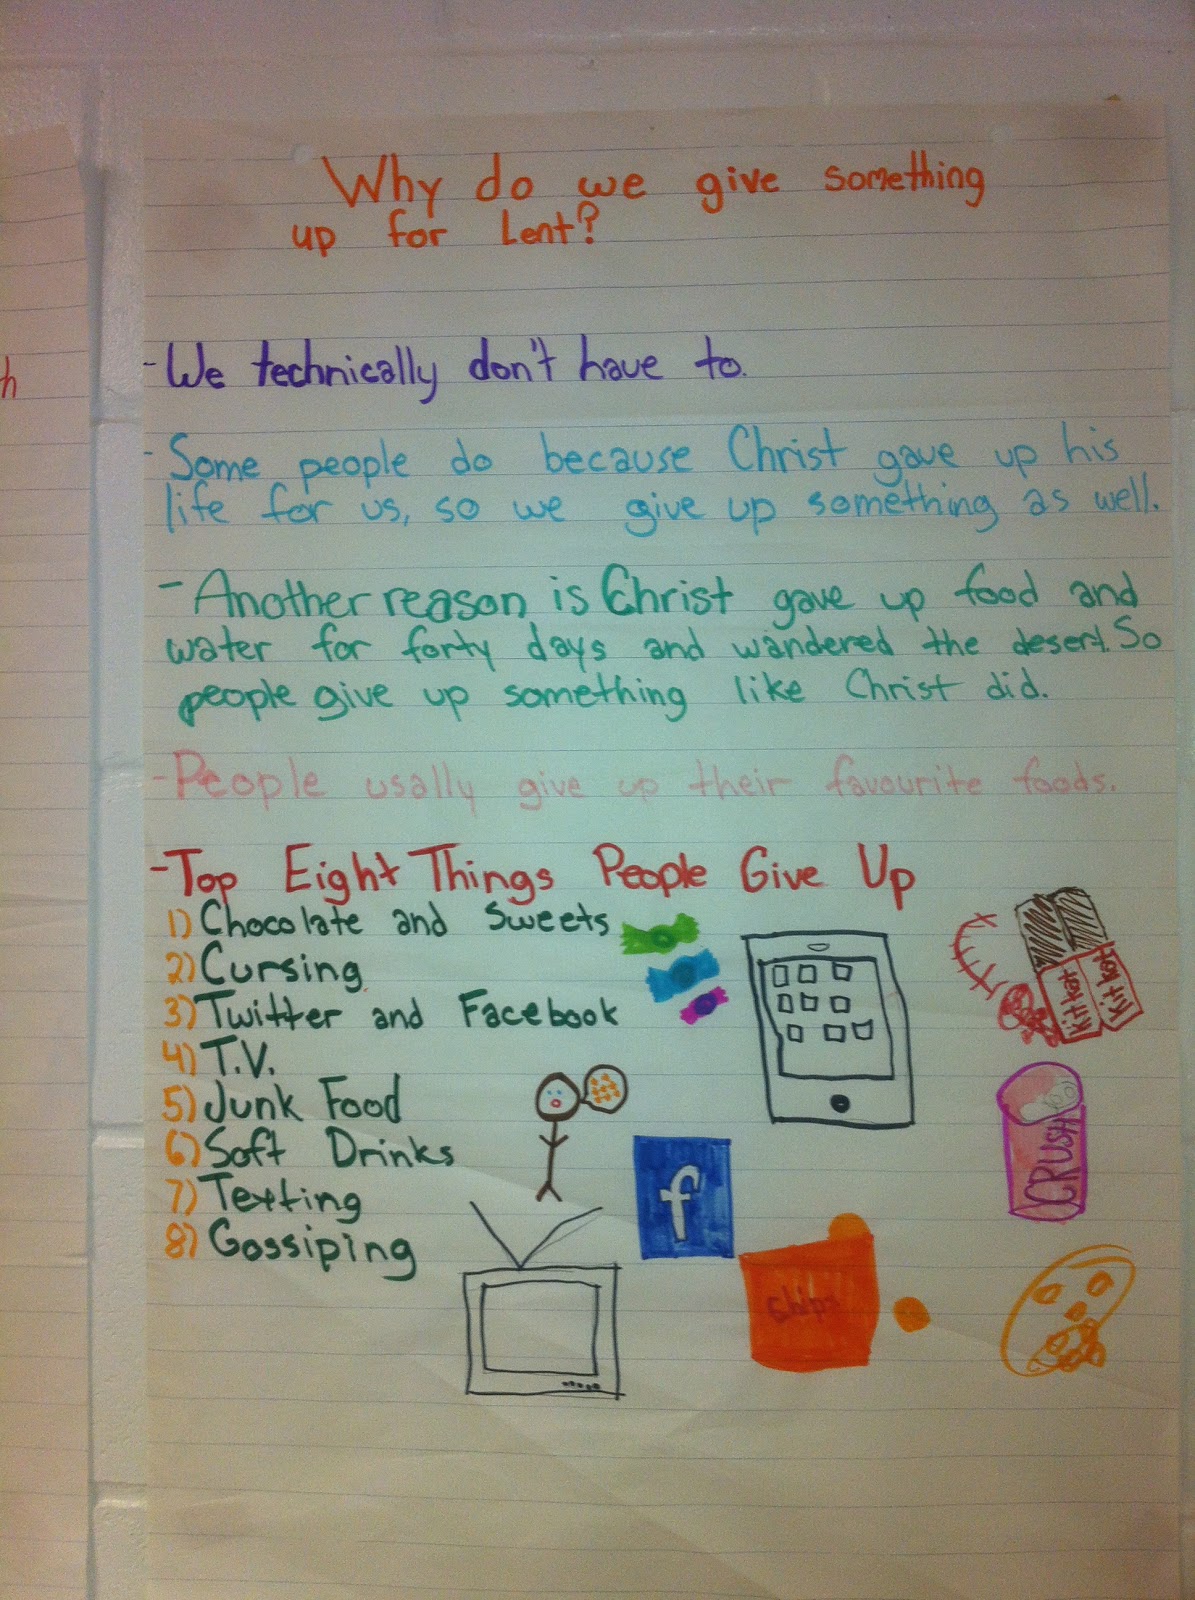 Why do we give something
up for Lent?
h
- We technically don't have to.
- Some people do because Christ gave up his
life for us, so we give up something as well.
- Another reason is Christ gave up food and
water for forty days and wandered the desert. So
people give up something like Christ did.
- People usally give up their favourite foods.
- Top Eight Things People Give Up
1) Chocolate and Sweets
2) Cursing
3) Twitter and Facebook
4) T.V.
5) Junk Food
6) Soft Drinks
7) Texting
8) Gossiping
Kit Kat
Kit Kat
CRUSH
f
chips